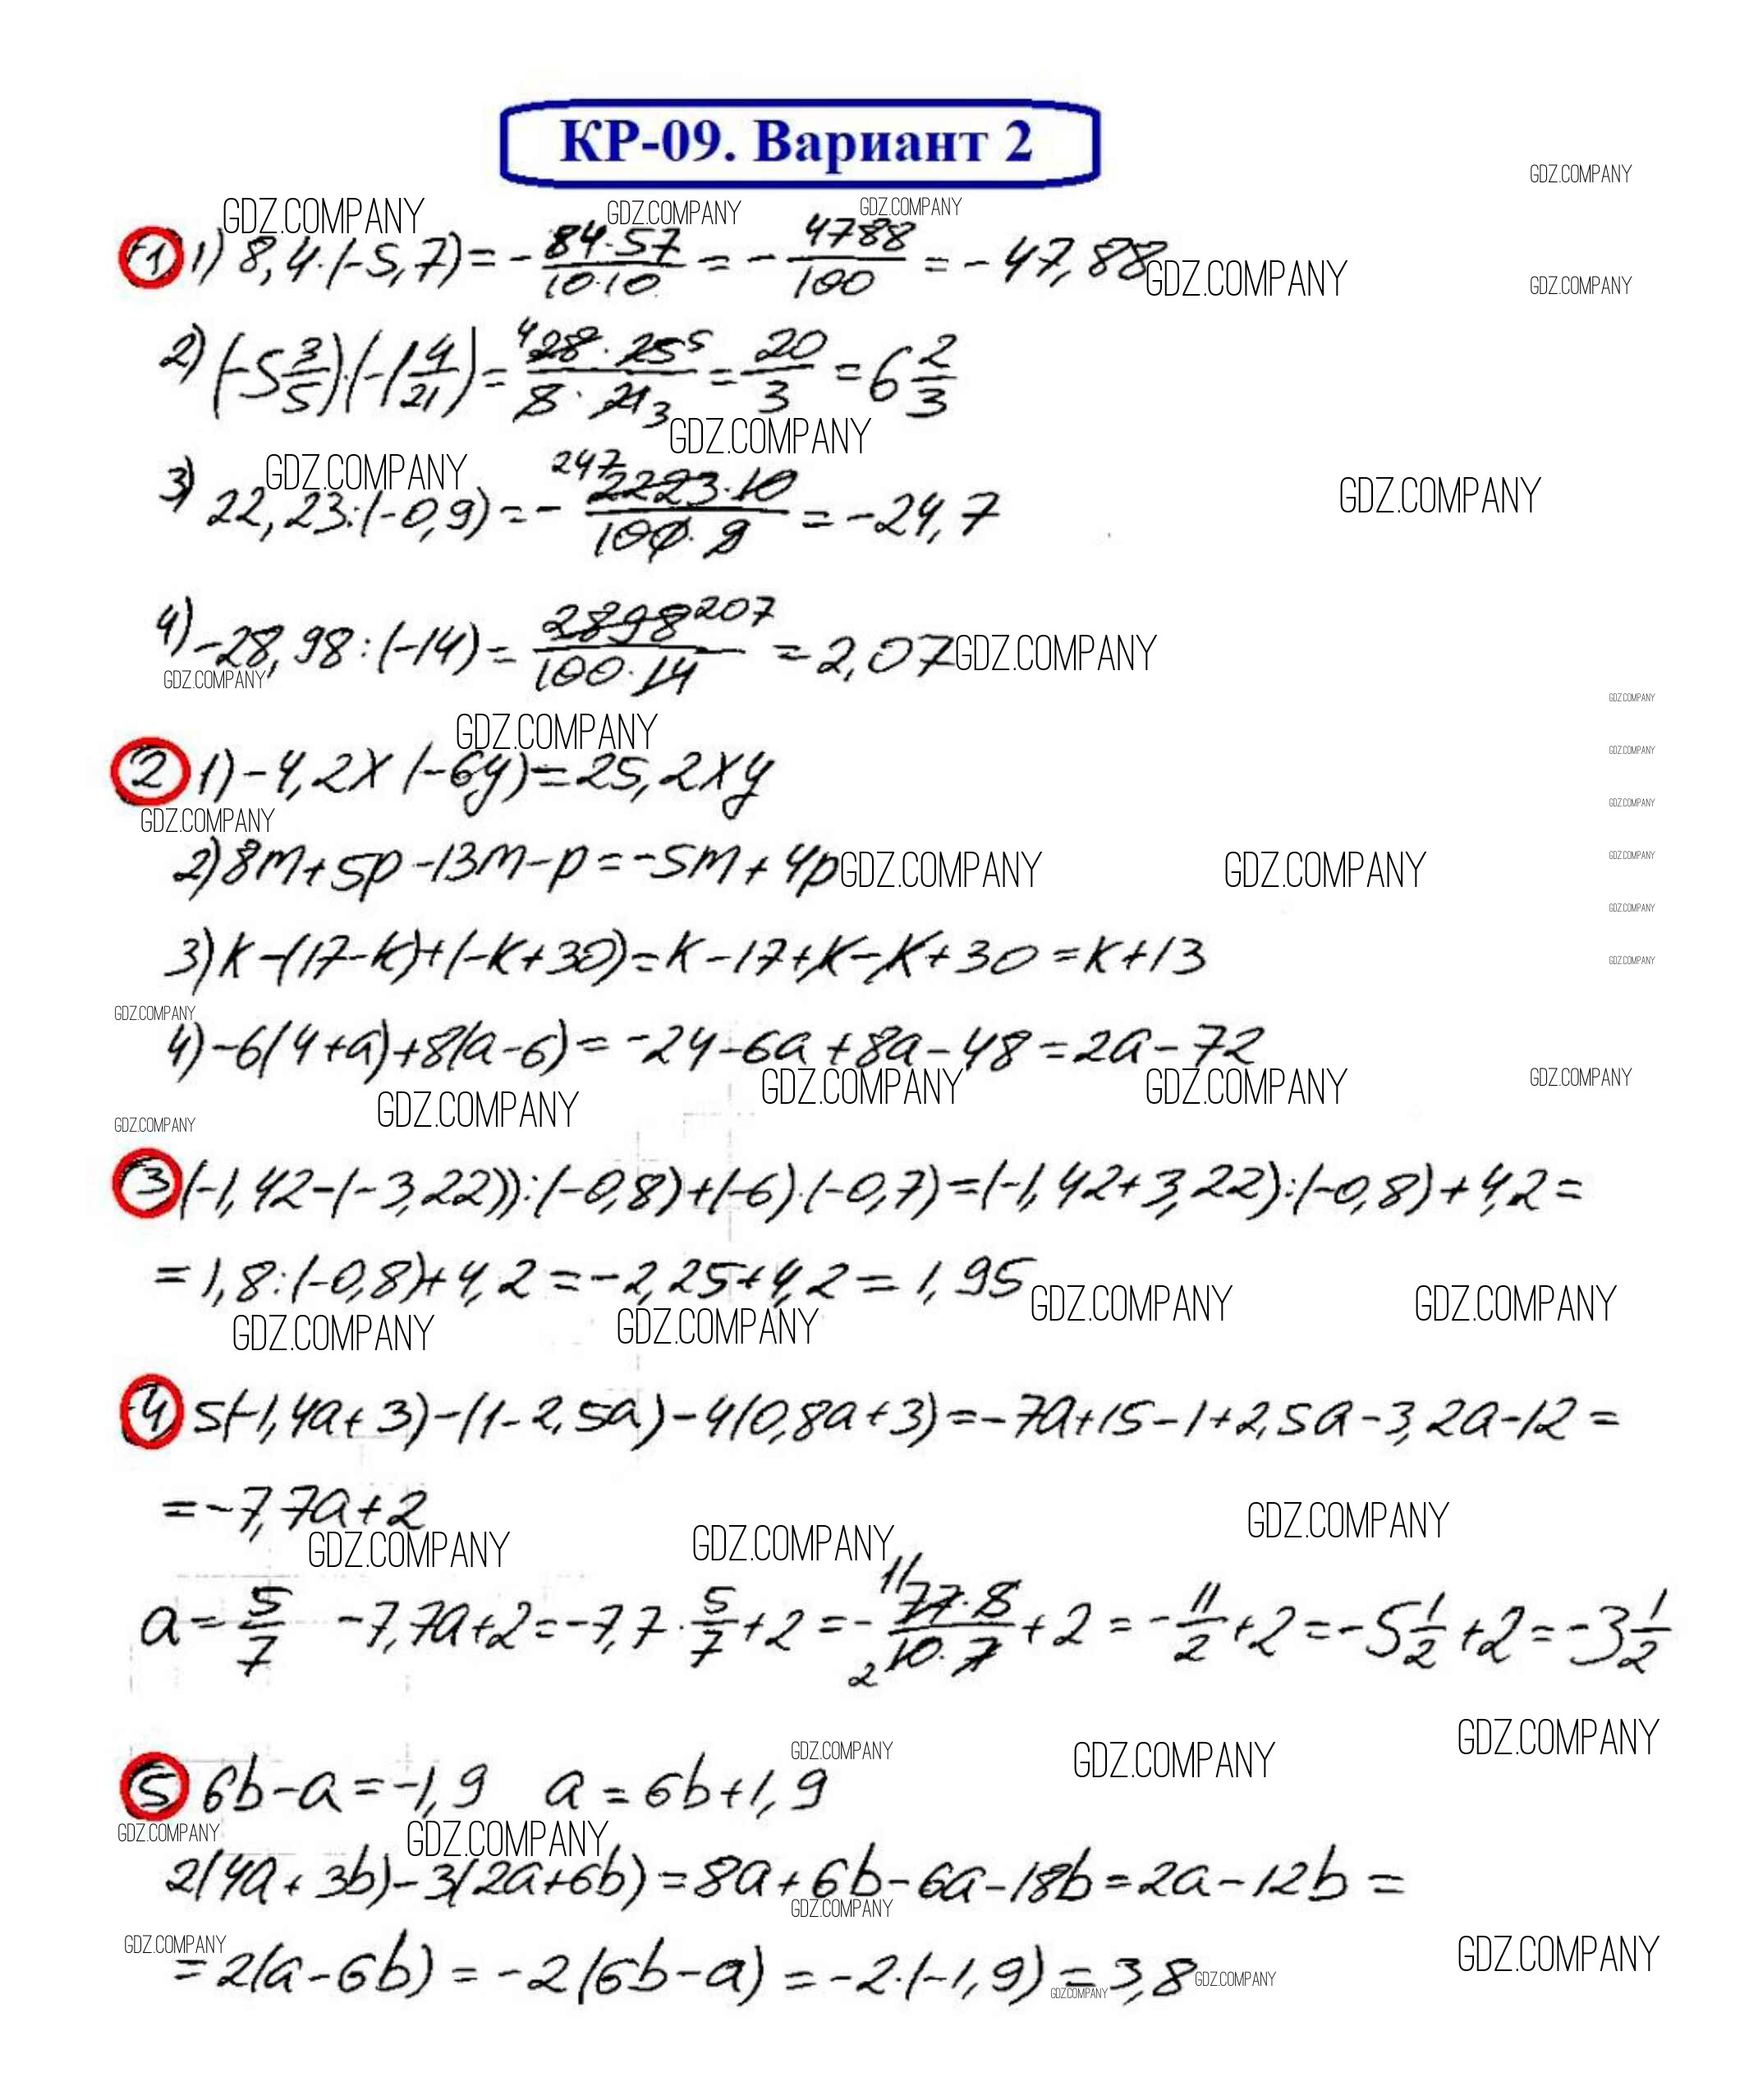 КР-09. Вариант 2
GDZ.COMPANY
GDZ.COMPANY GDZ.COMPANY GDZ.COMPANY
1 1) 8,4·(-5,7)= - 84·57/10·10 = - 4788/100 = - 47,88 GDZ.COMPANY
GDZ.COMPANY
2) (-5 3/5)·(-1 4/21)= 4 28·25 5/8·21 3 = 20/3 = 6 2/3
GDZ.COMPANY
GDZ.COMPANY GDZ.COMPANY
3) 22,23:(-0,9)= - 247 2223·10/100·9 = -24,7
4) -28,98:(-14)= 2898 207/100·14 = 2,07 GDZ.COMPANY
GDZ.COMPANY
GDZ.COMPANY
GDZ.COMPANY
GDZ.COMPANY
2 1) -4,2x (-6y)=25,2xy
GDZ.COMPANY
GDZ.COMPANY
2) 8m+5p-13m-p=-5m+4p GDZ.COMPANY GDZ.COMPANY GDZ.COMPANY
GDZ.COMPANY
3) k-(17-k)+(-k+30)=k-17+k-k+30=k+13
GDZ.COMPANY
GDZ.COMPANY
4) -6(4+a)+8(a-6)= -24-6a+8a-48=2a-72
GDZ.COMPANY GDZ.COMPANY GDZ.COMPANY
GDZ.COMPANY
GDZ.COMPANY
3 (-1,42-(-3,22)):(-0,8)+(-6)·(-0,7)=(-1,42+3,22):(-0,8)+4,2=
=1,8:(-0,8)+4,2=-2,25+4,2=1,95 GDZ.COMPANY GDZ.COMPANY
GDZ.COMPANY GDZ.COMPANY
4 5(-1,4a+3)-(1-2,5a)-4(0,8a+3)=-7a+15-1+2,5a-3,2a-12=
=-7,7a+2
GDZ.COMPANY
GDZ.COMPANY GDZ.COMPANY
a= 5/7 -7,7a+2=-7,7· 5/7 +2=- 11 77·5/2 10·7 +2= - 11/2 +2=-5 1/2 +2=-3 1/2
GDZ.COMPANY GDZ.COMPANY GDZ.COMPANY
5 6b-a=-1,9 a=6b+1,9
GDZ.COMPANY GDZ.COMPANY
2(4a+3b)-3(2a+6b)=8a+6b-6a-18b=2a-12b=
GDZ.COMPANY
GDZ.COMPANY GDZ.COMPANY
=2(a-6b)=-2(6b-a)=-2·(-1,9)=3,8 GDZ.COMPANY
GDZ.COMPANY